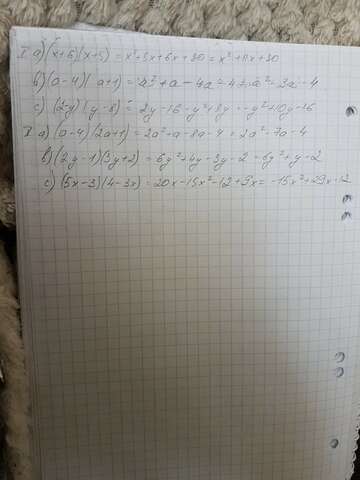 I a) (x+6)(x+5) = x²+5x+6x+30 = x²+11x+30
b) (a-4)(a+1) = a²+a-4a-4 = a²-3a-4
c) (2-y)(y-8) = 2y-16-y²+8y = -y²+10y-16
II a) (a-4)(2a+1) = 2a²+a-8a-4 = 2a²-7a-4
b) (2y-1)(3y+2) = 6y²+4y-3y-2 = 6y²+y-2
c) (5x-3)(4-3x) = 20x-15x²-12+9x = -15x²+29x-12